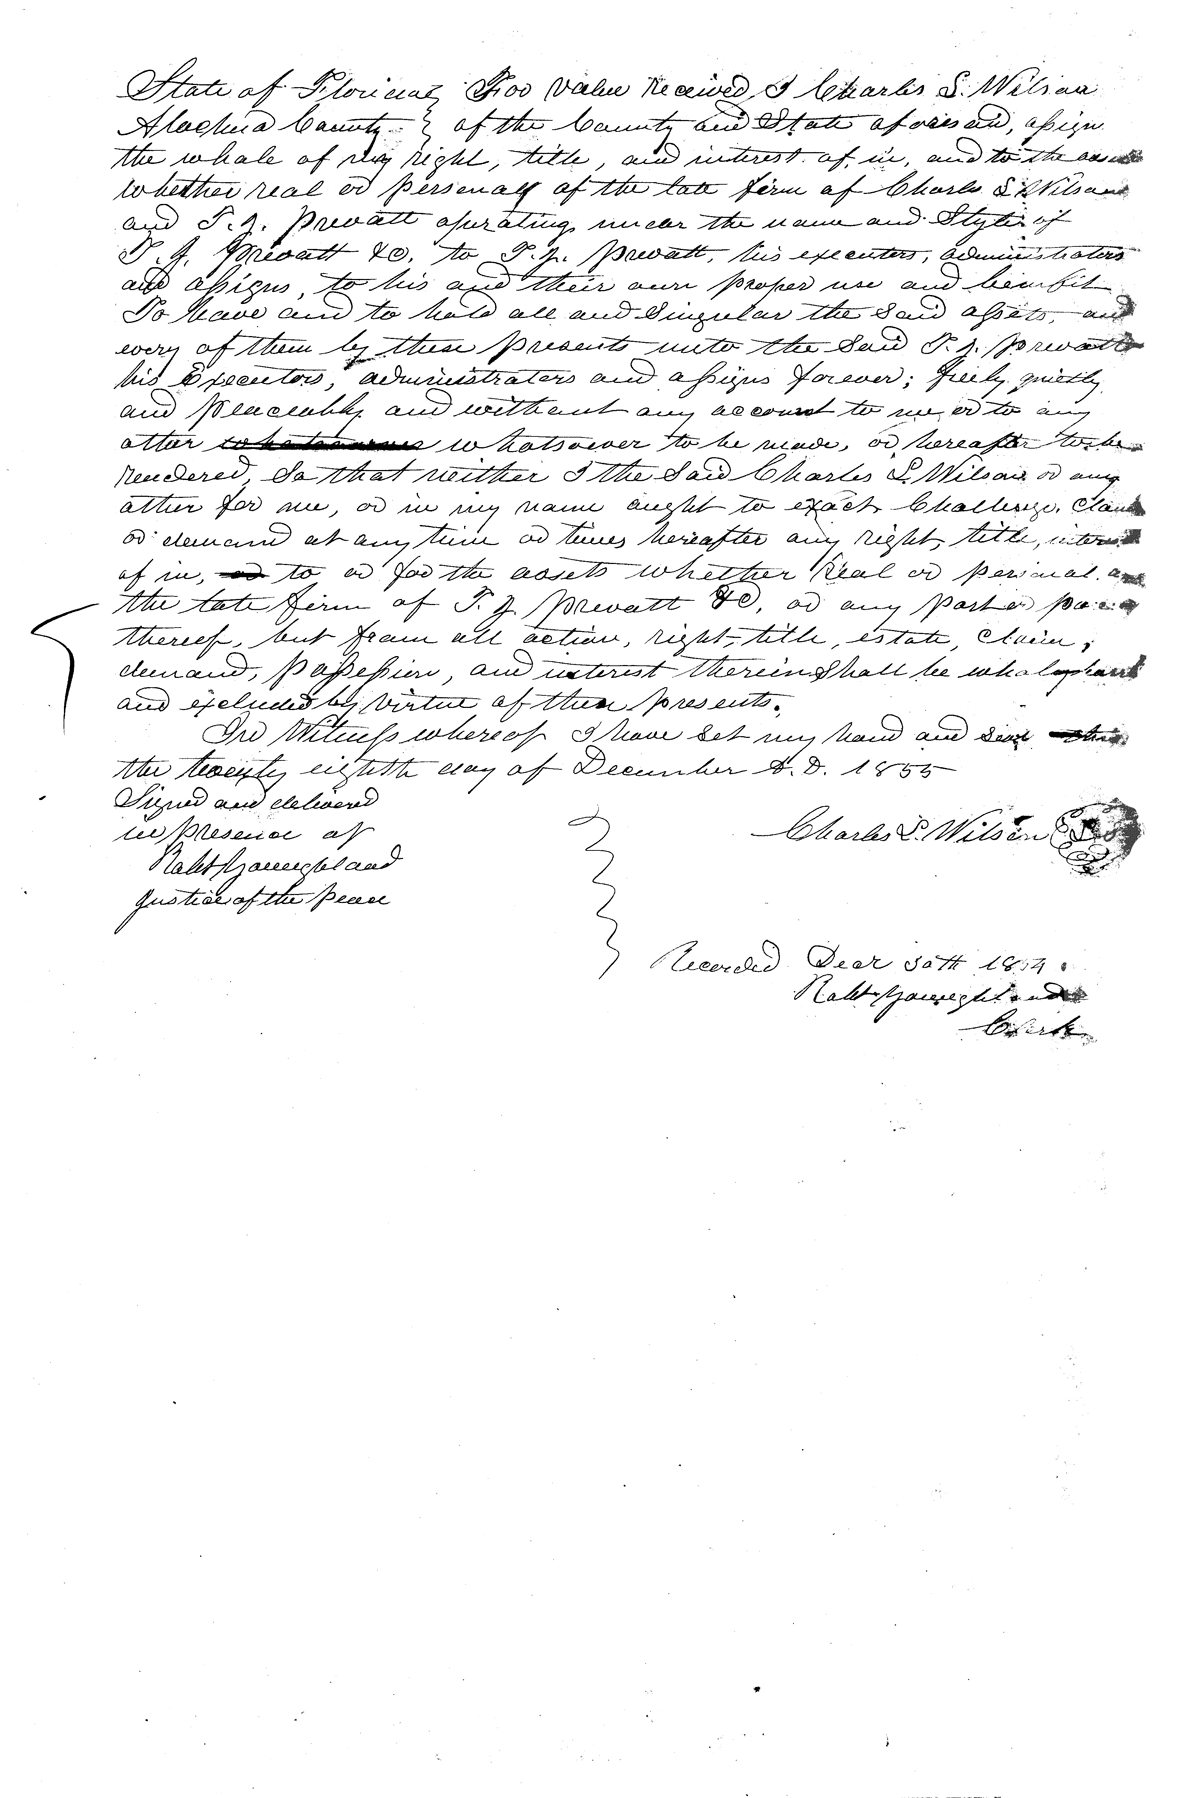 State of Florida } For value Received I Charles L. Wilson
Alachua County } of the County and State aforesaid, assign
the whole of my right, title, and interest of, in, and to the assets
whether real or personal of the late firm of Charles L Wilson
and T. J. Prevatt operating under the name and Style of
T. J. Prevatt & Co. to T. J. Prevatt, his executors, administrators
and assigns, to his and their own proper use and benifit
To have and to hold all and Singular the Said assets, and
every of them by these Presents unto the Said T. J. Prevatt
his Executors, administrators and assigns forever; freely, quietly
and peaceably and without any account to me or to any
other whatsoever to be made, or hereafter to be
rendered, So that neither I the Said Charles L. Wilson or any
other for me, or in my name ought to exact Challenge, Claim
or demand at any time or times hereafter any right, title, interest
of in, or to or for the assets whether Real or personal
the late firm of T. J. Prevatt & Co, or any Part or parcel
thereof, but from all action, right, title, estate, Claim,
demand, possession, and interest therein Shall be wholy
and excluded by virtue of these presents.
In Witness whereof I have Set my hand and Seal this
the twenty eighth day of December A. D. 1855
Signed and delivered
in presence of
Charles L. Wilson
Robt
Justice of the Peace
Recorded Decr 30th
Robt
Clerk